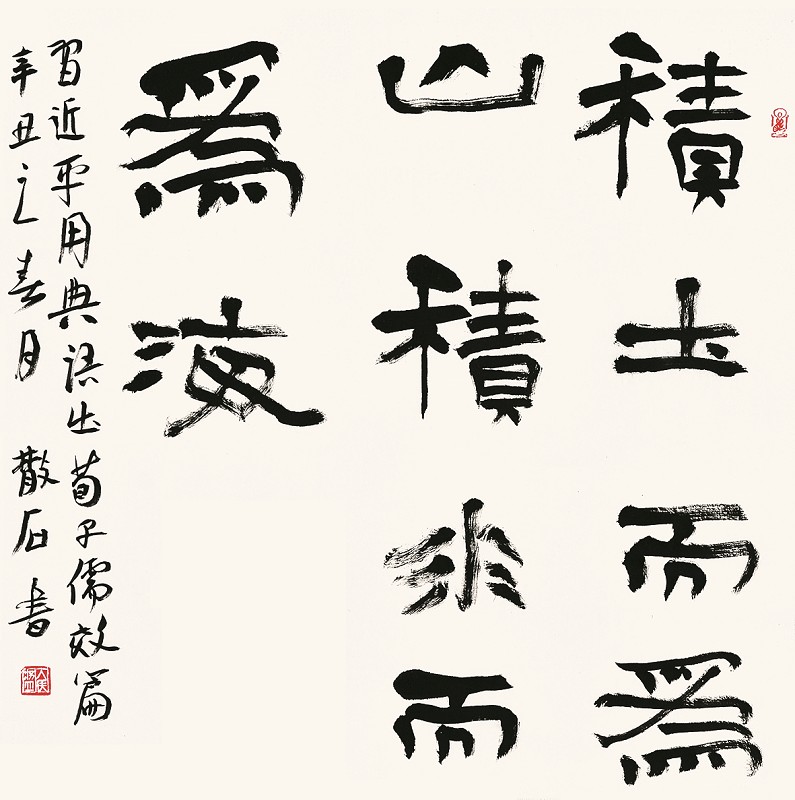 積土而為
山積水而
為海
習近平用典語出荀子儒效篇
辛丑之春月 散石書